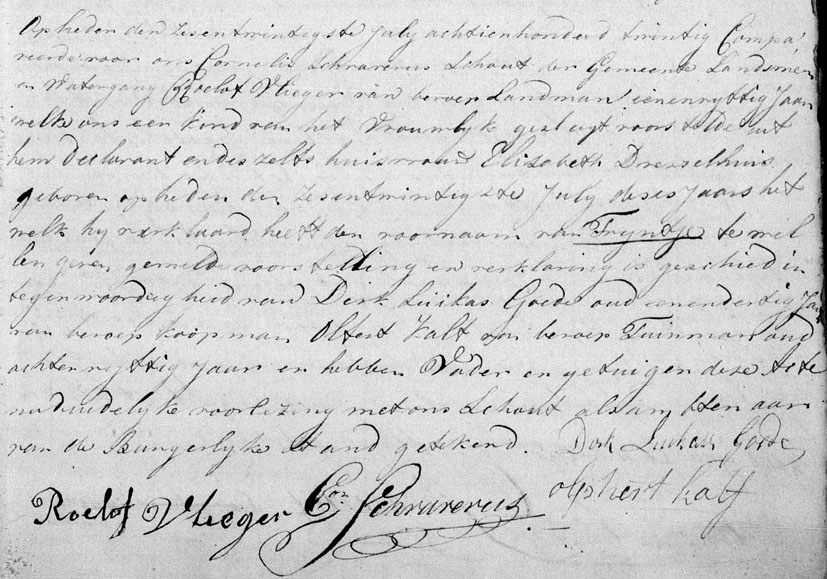 Op heden den zesentwintigste July achtienhonderd twintig Compa
reerde voor ons Cornelis Schraverus Schout der Gemeente Landsmeer
en Watergang Roelof Vlieger van beroep Landman eenenvyftig Jaar
welk ons een kind van het Vrouwlyke geslagt voorstelde uit
hem declarant en deszelfs huisvrouw Elizabeth Dresselhuis
geboren op heden den zesentwintigste July dezes Jaars het
welk hy verklaard heeft den voornaam van Tryntje te wil
len geven gemelde voorstelling en verklaring is geschied in
tegenwoordigheid van Dirk Luikas Goede oud eenendertig Jaar
van beroep koopman Olfert Kalf van beroep Tuinman oud
achtenvyftig Jaar en hebben Vader en getuigen deze acte
na duidelyke voorlezing met ons Schout als ambtenaar
van de Burgerlyke stand getekend. Dirk Luikas Goede
Roelof Vlieger Cor Schraverus olphert kalf